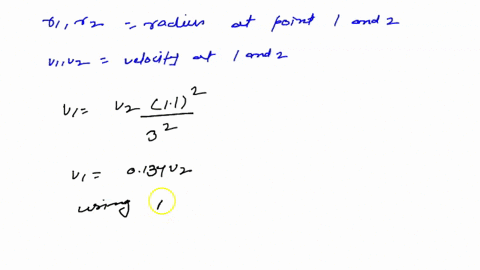 r1, r2 = radius at point 1 and 2
v1, v2 = velocity at 1 and 2
v1 = v2 (1.1)^2 / 3^2
v1 = 0.134 v2
using 1